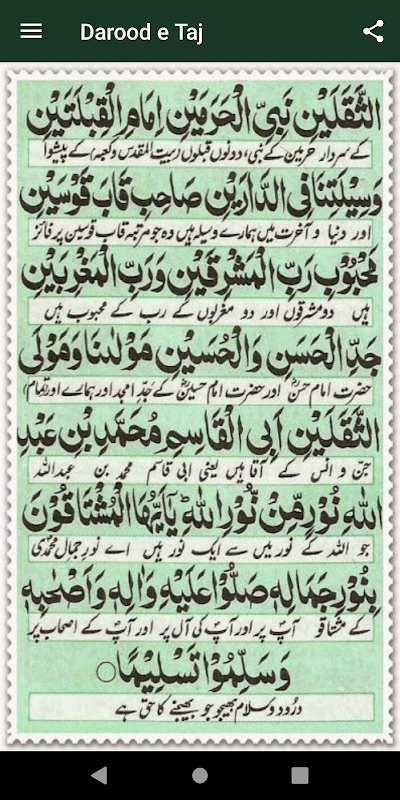 Darood e Taj
الثَّقَلَيْنِ نَبِيِّ الْحَرَمَيْنِ اِمَامِ الْقِبْلَتَيْنِ
کے سردار حرمین کے نبی، دونوں قبلوں (بیت المقدس و کعبہ) کے پیشوا
وَسِيْلَتِنَا فِی الدَّارَيْنِ صَاحِبِ قَابَ قَوْسَيْنِ
اور دنیا و آخرت میں ہمارے وسیلہ ہیں وہ جو مرتبہ قاب قوسین پر فائز
مَحْبُوْبِ رَبِّ الْمَشْرِقَيْنِ وَرَبِّ الْمَغْرِبَيْنِ
ہیں دو مشرقوں اور دو مغربوں کے رب کے محبوب ہیں
جَدِّ الْحَسَنِ وَالْحُسَيْنِ مَوْلٰىنَا وَمَوْلَی
حضرت امام حسنؓ اور حضرت امام حسینؓ کے جدِّ امجد اور ہمارے اور (تمام)
الثَّقَلَيْنِ اَبِی الْقَاسِمِ مُحَمَّدِ بْنِ عَبْدِ
جن و انس کے آقا ہیں یعنی ابی قاسم محمد بن عبداللہ
اللهِ نُوْرٍ مِّنْ نُّوْرِ اللهِ ؕ يٰۤاَيُّهَا الْمُشْتَاقُوْنَ
جو اللہ کے نور میں سے ایک نور ہیں اے نورِ جمالِ محمدی
بِنُوْرِ جَمَالِهٖ صَلُّوْا عَلَيْهِ وَاٰلِهٖ وَاَصْحٰبِهٖ
کے مشتاقو آپؐ پر اور آپؐ کی آل پر اور آپؐ کے اصحاب پر
وَسَلِّمُوْا تَسْلِيْمًا ○
درُود و سلام بھیجو جو بھیجنے کا حق ہے